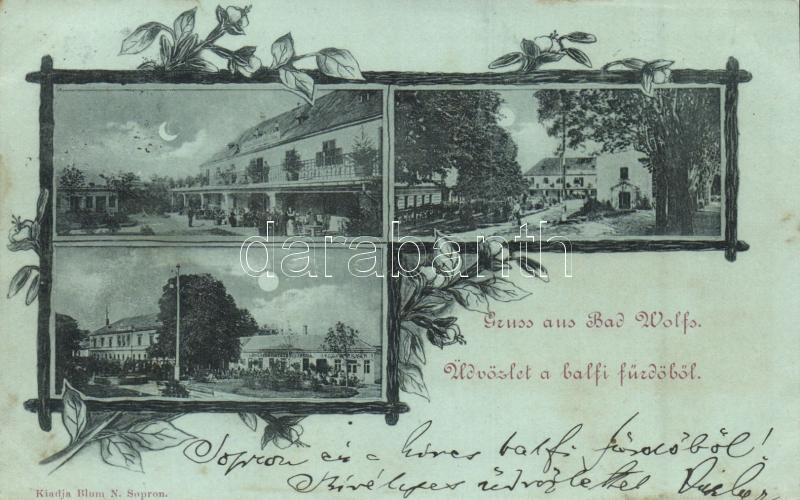 darabanth.com
Gruss aus Bad Wolfs.
Üdvözlet a balfi fürdőből.
Sopron és a híres balfi fürdőből!
Szívélyes üdvözlettel
Kiadja Blum N. Sopron.